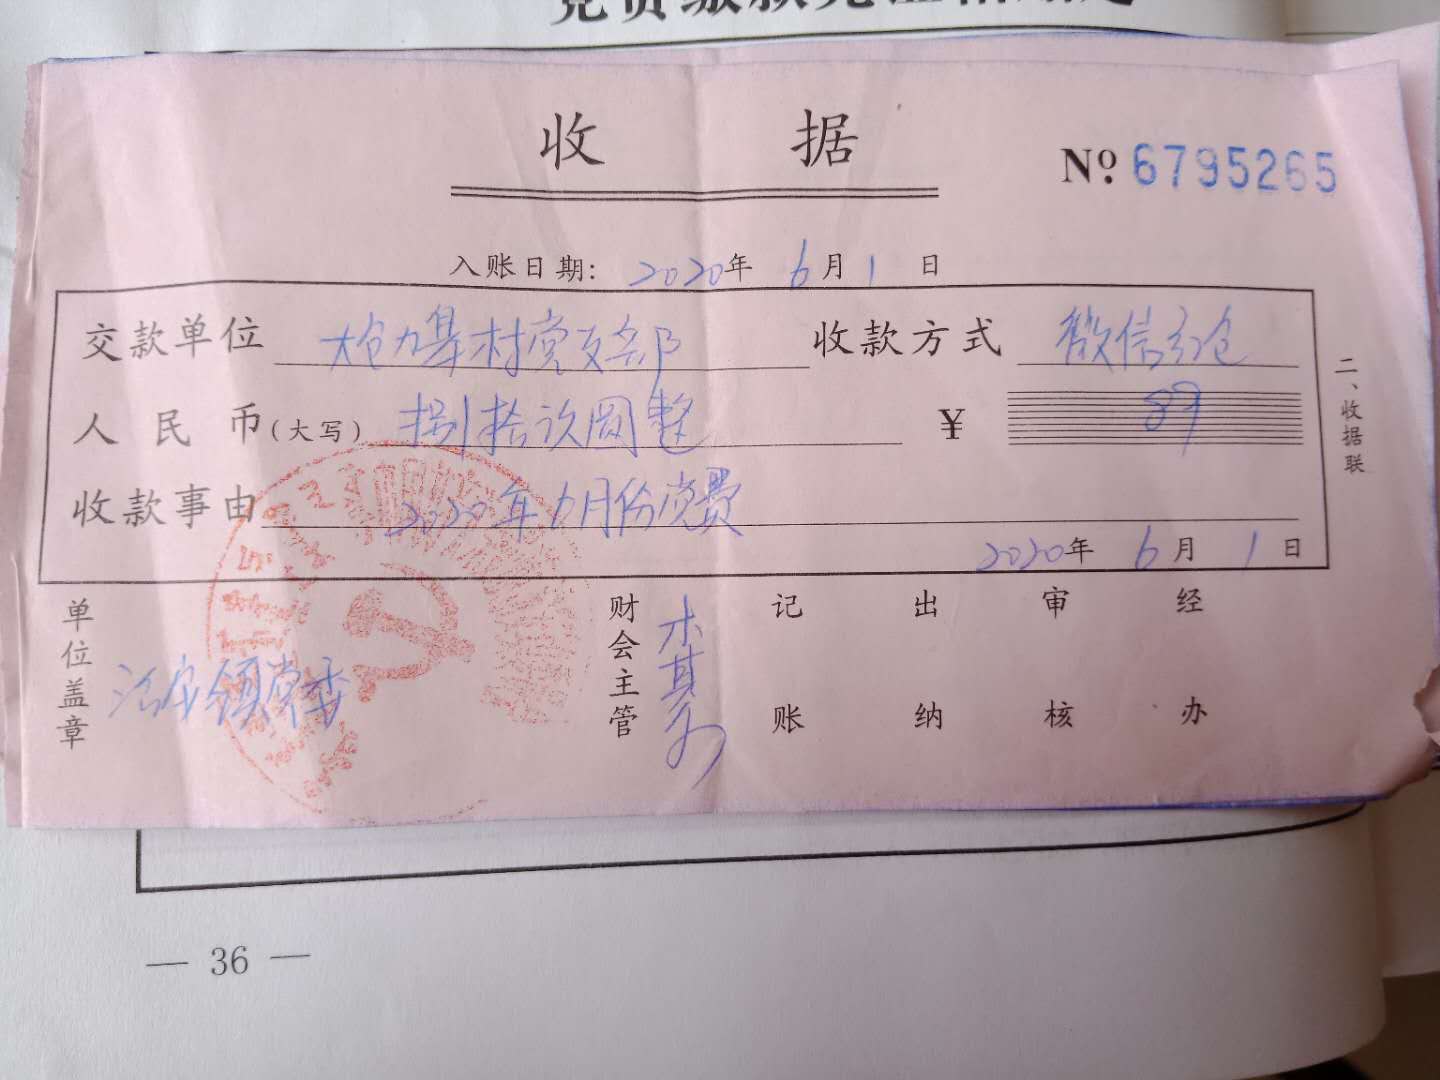 收 据
Nº 6795265
入账日期: 2020年 6月 1日
交款单位 大仓九基村党支部 收款方式 微信红包
人民币(大写) 捌拾玖圆整 ¥ 89
收款事由 2020年6月份党费
2020年 6月 1日
二、收据联
单位盖章 镇党委
财会主管
记账
出纳
审核
经办
— 36 —